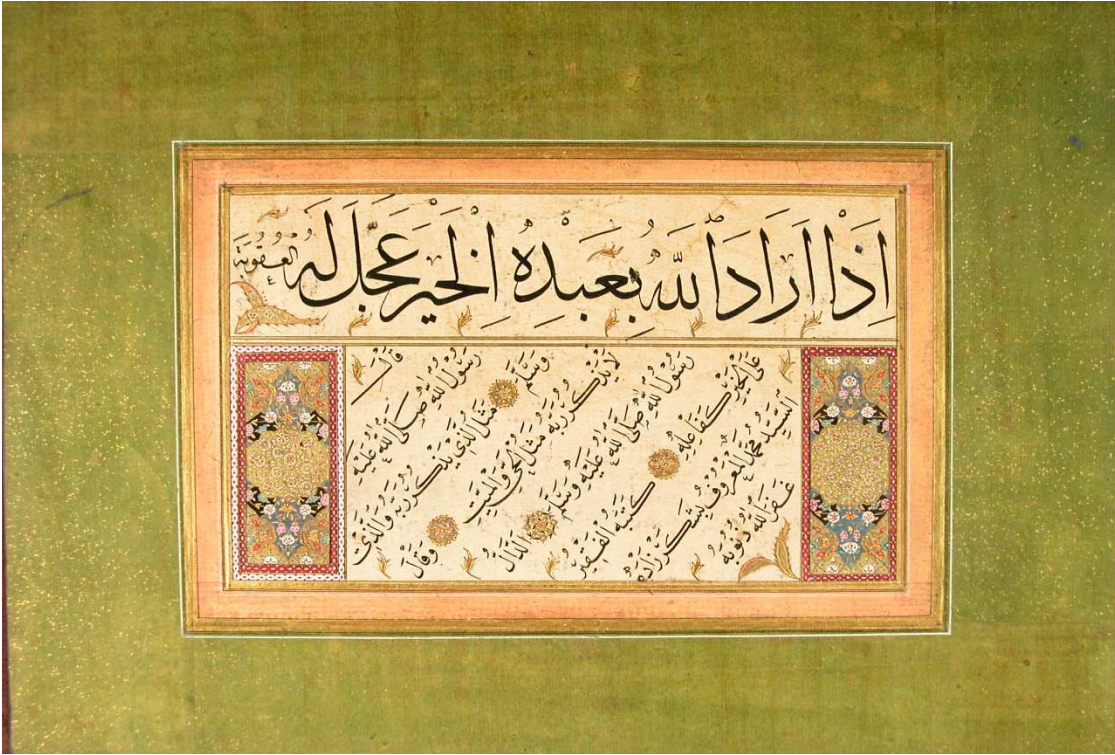 اذا اراد الله بعبده الخير عجل له العقوبة
قال
رسول الله صلى الله عليه
وسلم مثل الذي يذكر ربه والذي
لا يذكر ربه مثل الحي والميت وقال
رسول الله صلى الله عليه وسلم الدال
على الخير كفاعله كتبه الفقير
السيد محمد المعروف بشكر زاده
غفر الله ذنوبه